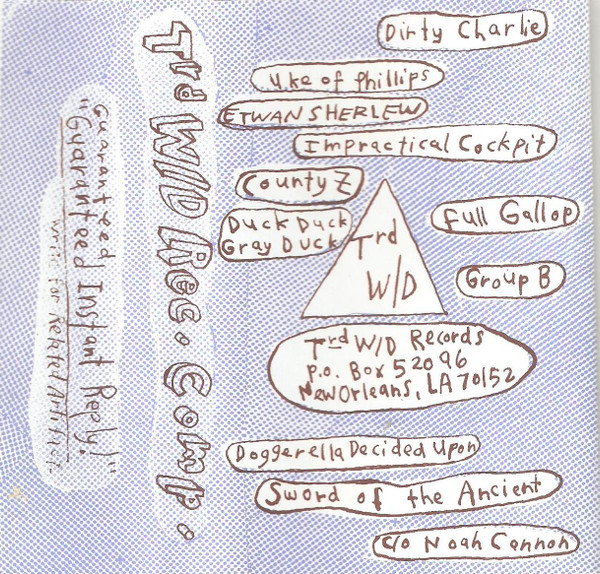 Dirty Charlie
Uke of Phillips
ETWAN SHERLEW
Impractical Cockpit
County Z
Duck Duck
Gray Duck
Full Gallop
Group B
Trd
W/D
Trd W/D Records
P.O. Box 52096
New Orleans, LA 70152
Doggerella Decided Upon
Sword of the Ancient
c/o Noah Cannon
Trd W/D Rec. Comp.
Guaranteed
"Guaranteed Instant Reply!"
write for Related Artifacts